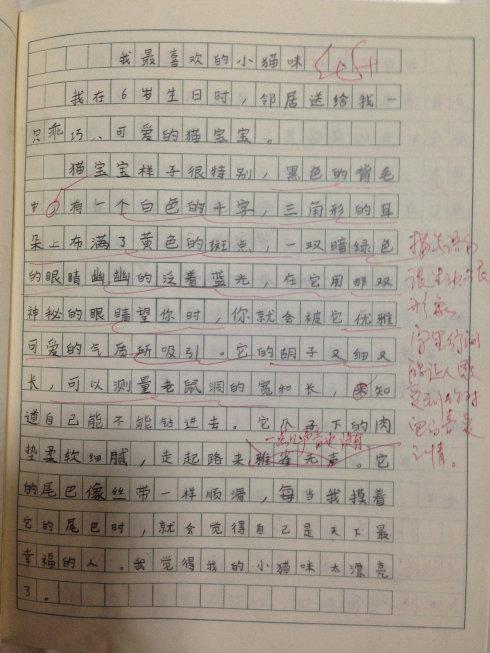 我最喜欢的小猫咪
我在6岁生日时，邻居送给我一
只乖巧、可爱的猫宝宝。
猫宝宝样子很特别，黑色的背毛
中，有一个白色的十字，三角形的耳
朵上布满了黄色的斑点，一双暗绿色
的眼睛幽幽的泛着蓝光，在它用那双
神秘的眼睛望你时，你就会被它优雅
可爱的气质所吸引。它的胡子又细又
长，可以测量老鼠洞的宽和长，来知
道自己能不能钻进去。它爪子下的肉
一点儿声音也没有
垫柔软细腻，走起路来鸦雀无声。它
的尾巴像丝带一样顺滑，每当我摸着
它的尾巴时，就会觉得自己是天下最
幸福的人。我觉得我的小猫咪太漂亮
了。
描写语句
很生动、很
形象。
字里行间
能让人感
受到你对
它的喜爱
之情。